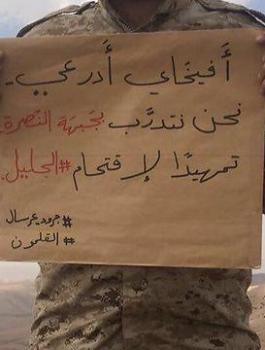 أفيخاي أدرعي.
نحن نتدرَّب بجَبهَة النّصرة
تمهيدًا لإقتحام #الجليل.
#جرود عرسال
#القلمون